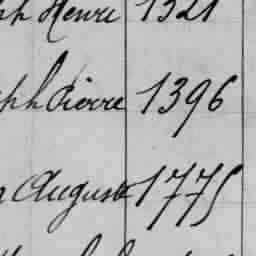 ph Henri 1321
ph Pierre 1396
Auguste 1775